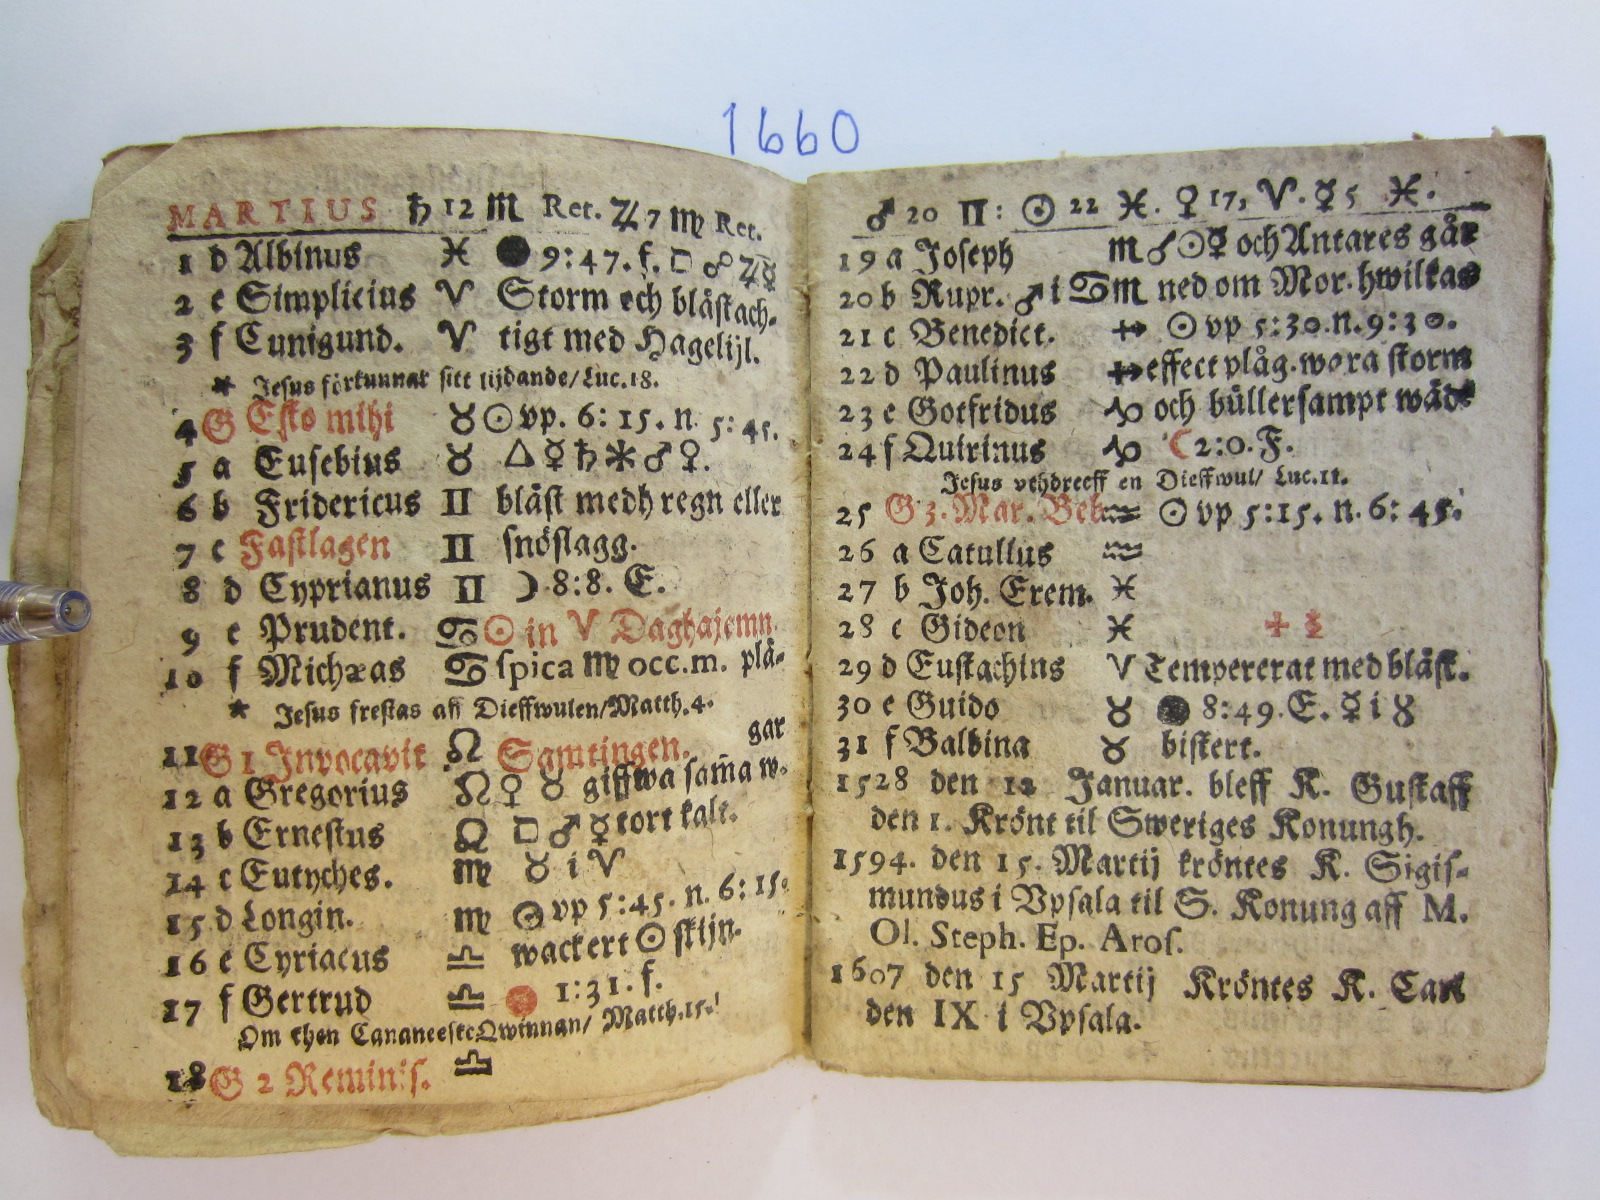 1660
MARTIUS ♄ 12 ♏ Ret. ♃ 7 ♍ Ret.
1 d Albinus ♓ ● 9:47. f. □ ☍ ♃ ☿
2 e Simplicius ♈ Storm och blåſtach-
3 f Cunigund. ♈ tigt med Hagelijl.
* Jeſus förkunnar ſitt lijdande/ Luc.18.
4 G Eſto mihi ♉ ☉ vp. 6:15. n. 5:45.
5 a Euſebius ♉ △ ☿ ♄ ⚹ ♂ ♀.
6 b Fridericus ♊ blåſt medh regn eller
7 c Faſtlagen ♊ ſnöſlagg.
8 d Cyprianus ♊ ☽ 8:8. E.
9 e Prudent. ♋ ☉ in ♈ Daghajemn.
10 f Michæas ♋ ſpica ♍ occ.m. plä-
* Jeſus freſtas aff Dieffwulen/Matth.4. gar
11 G 1 Invocavit ♌ Samtingen.
12 a Gregorius ♌ ♀ ♉ giffwa ſam̃a w.
13 b Erneſtus ♌ □ ♂ ☿ tort kalt.
14 c Eutyches. ♍ ☿ i ♈
15 d Longin. ♍ ☉ vp 5:45. n. 6:15.
16 e Cyriacus ♎ wackert ☉ ſkijn.
17 f Gertrud ♎ ● 1:31. f.
Om then Cananeeſke Qwinnan/ Matth.15.
18 G 2 Reminiſ. ♎
♂ 20 ♊: ☉ 22 ♓. ♀ 17, ♈. ☿ 5 ♓.
19 a Joſeph ♏ ☌ ☉ ☿ och Antares går
20 b Rupr. ♂ i ♋ ♏ ned om Mor. hwilkas
21 c Benedict. ♐ ☉ vp 5:30. n. 9:30.
22 d Paulinus ♐ effect plåg. wora ſtorm
23 e Gotfridus ♑ och bullerſampt wäd
24 f Quirinus ♑ ☾ 2:0. F.
Jeſus vthdreeff en Dieffwul/ Luc.11.
25 G 3. Mar. Beb. ♒ ☉ vp 5:15. n. 6:45.
26 a Catullus ♒
27 b Joh. Erem. ♓
28 c Gideon ♓
29 d Euſtachius ♈ Tempererat med blåſt.
30 e Guido ♉ ● 8:49. E. ☿ i ♉
31 f Balbina ♉ biſtert.
1528 den 12 Januar. bleff K. Guſtaff
den 1. Krönt til Sweriges Konungh.
1594. den 15. Martij kröntes K. Sigiſ-
mundus i Vpſala til S. Konung aff M.
Ol. Steph. Ep. Aroſ.
1607 den 15 Martij Kröntes K. Carl
den IX i Vpſala.